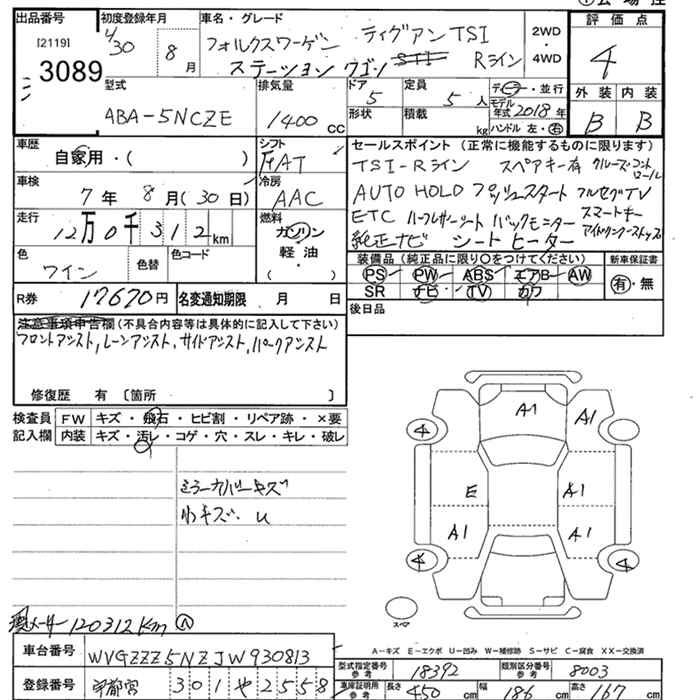 出品番号 初度登録年月 車名・グレード 評価点
[2119] 4/30 8月 フォルクスワーゲン ティグアン TSI 2WD・4WD 4
3089 ステーション ワゴン Rライン
型式 排気量 ドア 定員 ディーラー・並行 外装 内装
ABA-5NCZE 1400 cc 5 5人 モデル年式 2018年 B B
形状 積載 kg ハンドル 左・右
車歴 シフト セールスポイント (正常に機能するものに限ります)
自家用・( ) FAT TSI-Rライン スペアキー有 クルーズ・コントロール
車検 冷房 AUTO HOLD プッシュスタート フルセグTV
7年 8月(30日) AAC ETC ハーフレザーシート バックモニター スマートキー
走行 燃料 純正ナビ シートヒーター アイドリングストップ
12万0千312km ガソリン・軽油・( )
色 色替 色コード 装備品 (純正品に限り○をつけてください) 新車保証書
ワイン PS PW ABS エアB AW 有・無
SR ナビ TV カワ
R券 17670円 名変通知期限 月 日 後日品
注意事項申告欄 (不具合内容等は具体的に記入して下さい)
フロントアシスト, レーンアシスト, サイドアシスト, パークアシスト
修復歴 有 〔箇所 〕
検査員 FW キズ・飛石・ヒビ割・リペア跡・×要
記入欄 内装 キズ・汚レ・コゲ・穴・スレ・キレ・破レ
ミラーカバーキズ
キズ・U
A1 A1
4
E A1
A1 A1
4 4
スペア
メーター 120312Km
A-キズ E-エクボ U-凹み W-補修跡 S-サビ C-腐食 XX-交換済
車台番号 WVGZZZ5NZJW930813
型式指定番号 参考 18392 類別区分番号 参考 8003
登録番号 宇都宮 301 や 2558
車庫証明用 参考 長さ 450 cm 幅 186 cm 高さ 167 cm